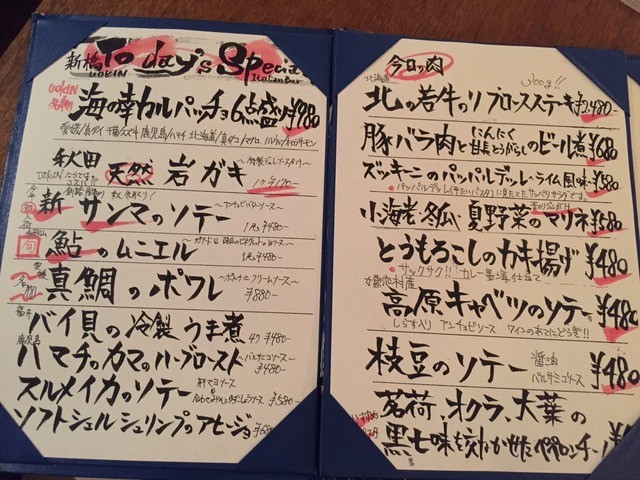 新橋 Today's Special
UOKIN Italian Bar
UOKIN
名物
海の幸カルパッチョ6点盛り ¥980
秋田 天然 岩ガキ
新 サンマのソテー
1尾 ¥480-
旬 鮎のムニエル
1尾 ¥480-
真鯛のポワレ
¥880-
バイ貝の冷製うま煮
4ヶ ¥480-
鹿児島
ハマチのカマのハーブロースト
バルサミコソース
¥480-
スルメイカのソテー
肝マヨソース
¥580-
ソフトシェルシュリンプのアヒージョ
今日の肉
北海道
北の若牛のリブロースステーキ ¥2,480-
豚バラ肉とにんにく 甘長とうがらしのビール煮 ¥680
ズッキーニのパッパルデッレ ~ライム風味~ ¥580
小海老・冬瓜・夏野菜のマリネ ¥580
とうもろこしのかき揚げ ¥480
サックサク!! カレー塩
高原キャベツのソテー ¥480
しらす入り アンチョビソース ワインのおともにどうぞ!!
枝豆のソテー
醤油
バルサミコソース
¥480
茗荷、オクラ、大葉の
黒七味を効かせたペペロンチーノ